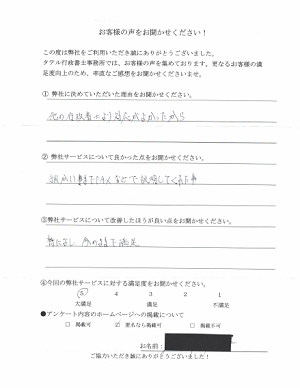 お客様の声をお聞かせください！
この度は弊社をご利用いただき誠にありがとうございました。
タテル行政書士事務所では、お客様の声を集めております。更なるお客様の満
足度向上のため、率直なご感想をお聞かせくださいませ。
① 弊社に決めていただいた理由をお聞かせください。
他の行政書士より対応がよかったから
② 弊社サービスについて良かった点をお聞かせください。
FAXなどで説明してくれた事
③弊社サービスについて改善したほうが良い点をお聞かせください。
特になし 今のままで満足
④今回の弊社サービスに対する満足度をお聞かせください。
5 4 3 2 1
大満足 満足 不満足
●アンケート内容のホームページへの掲載について
□ 掲載可 ☑ 匿名なら掲載可 □ 掲載不可
お名前：
ご協力いただき誠にありがとうございました！